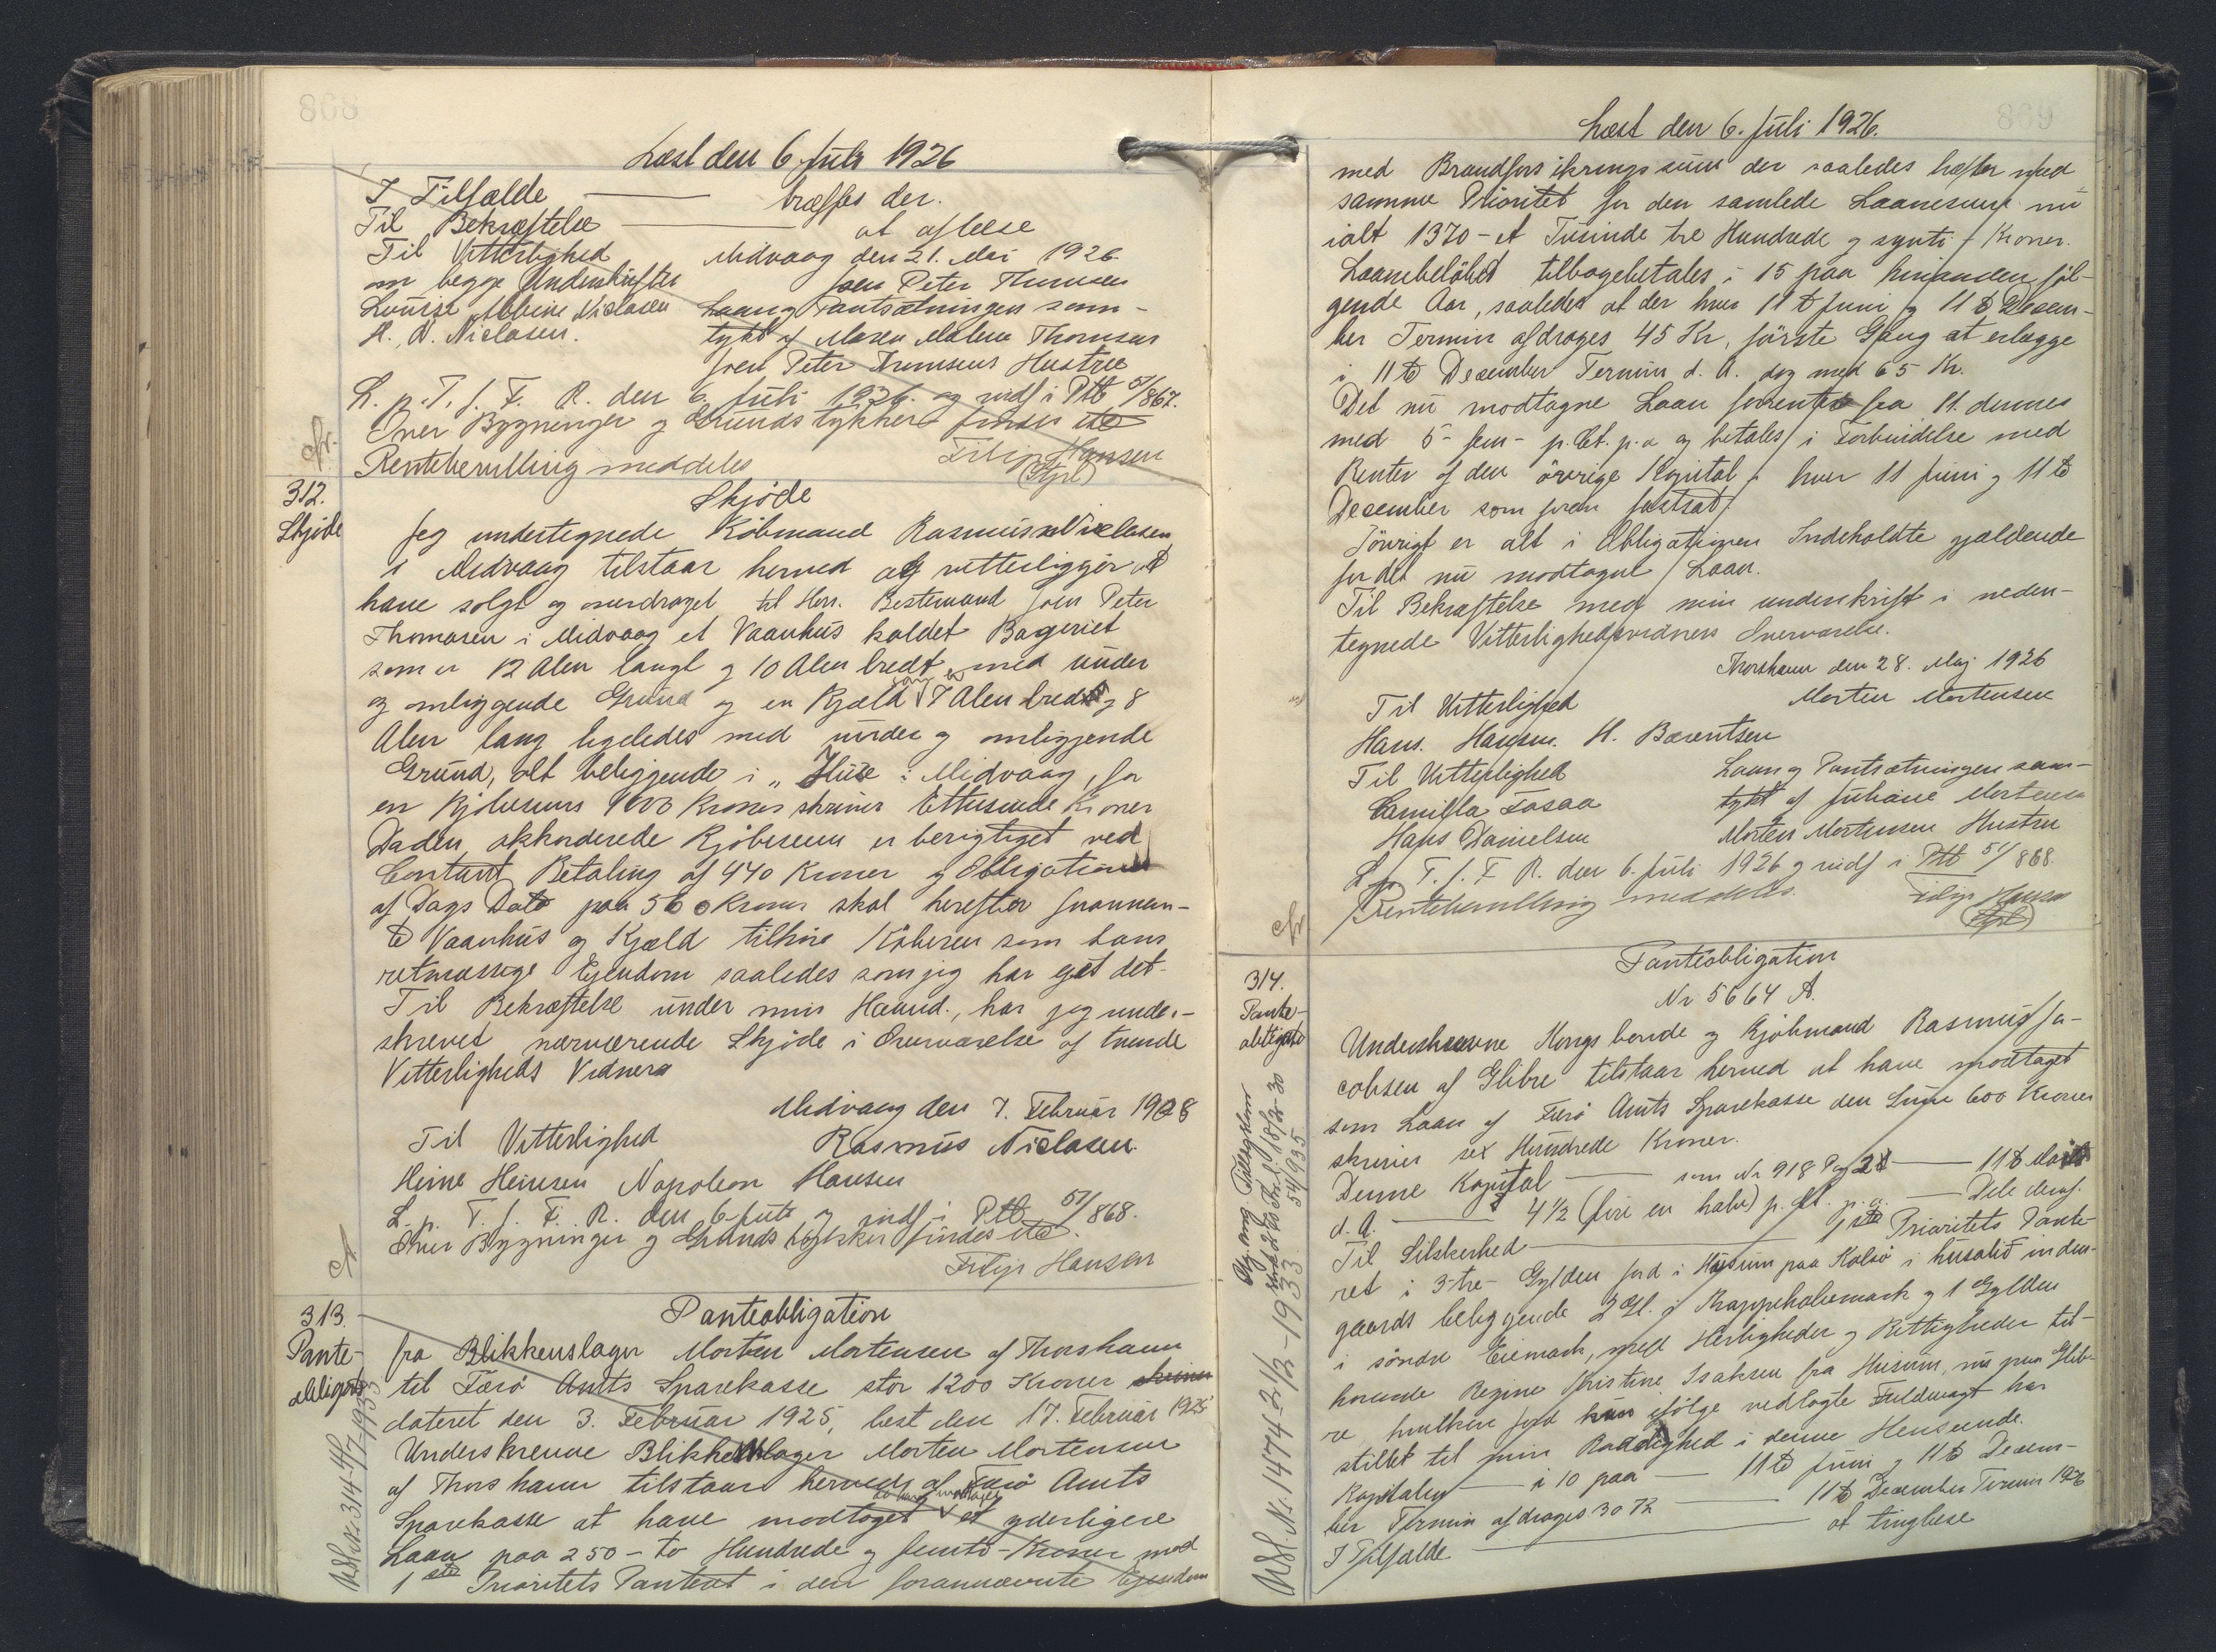 868
Læst den 6. Juli 1926
I Tilfælde — træffes der.
Til Bekræftelse — at aflæse
Til Vitterlighed Midvaag den 21. Mai 1926
om begge Underskrifter Joen Peter Thomsen
Louise Niclasen Laan og Pantsætningen sam-
H. N. Niclasen. tykt af Maren Malene Thomsen
Joen Peter Thomsens Hustru
L. p. T. f. F. R. den 6. Juli 1926. og indf i Ptb 51/867.
Over Bygninger og Grundstykker findes etc
Rentebevilling meddeles Filip Hansen
(Gyl)
312. Skjøde
Skjøde Jeg undertegnede Købmand Rasmus Niclasen
i Midvaag tilstaar herved og vitterliggør at
have solgt og overdraget til Hrr. Bestemand Joen Peter
Thomasen i Midvaag et Vaanhus kaldet Bageriet
som er 12 Alen langt og 10 Alen bredt, med under
og omliggende Grund og en Kjæld 7 Alen bred og 8
Alen lang ligeledes med under og omliggende
Grund, alt beliggende i „Huse i Midvaag, for
en Kjøbesum 1000 Kroner skriver Ettusende Kroner
Da den akkorderede Kjøbesum er berigtiget ved
Contant Betaling af 440 Kroner og Obligation
af Dags Dato paa 560 Kroner skal herefter fornævn-
te Vaanhus og Kjæld tilhøre Køberen som hans
retmæssige Ejendom saaledes som jeg har ejet det.
Til Bekræftelse under min Haand., har jeg under-
skrevet nærværende Skjøde i Overværelse af tvende
Vitterligheds Vidner
Midvaag den 7. Februar 1928
Til Vitterlighed Rasmus Niclasen.
Heine Heinesen Napoleon Hansen
L. p. T. f. F. R. den 6. Juli og indf i Ptb 51/868.
Over Bygninger og Grundstykker findes etc.
Filip Hansen
313. Panteobligation
Pante- fra Blikkenslager Morten Mortensen af Thorshavn
obligation til Færø Amts Sparekasse stor 1200 Kroner
dateret den 3. Februar 1925, læst den 17. Februar 1925
Underskrevne Blikkenslager Morten Mortensen
af Thorshavn tilstaar herved af Færø Amts
Sparekasse at have modtaget et yderligere
Laan paa 250 – to Hundrede og femti – Kroner med
1ste Prioritets Panteret i den forannævnte Ejendom
Udsl. Nr. 314 4/7-1933
869
Læst den 6. Juli 1926.
med Brandforsikringssum der saaledes hæfter med
samme Prioritet for den samlede Laanesum nu
ialt 1370 – et Tusinde tre Hundrede og synti – Kroner.
Laanebeløbet tilbagebetales i 15 paa hinanden føl-
gende Aar, saaledes at der hver 11te Juni og 11te Decem-
ber Termin afdrages 45 Kr, første Gang at erlægge
i 11te December Termin d. A. dog med 65 Kr.
Det nu modtagne Laan forrentes fra 11. dennes
med 5 – fem – p. Ct. p. a og betales i Forbindelse med
Renter af den øvrige Kapital hver 11 Juni og 11te
December som foran fastsat.
Iøvrigt er alt i Obligationen Indeholdte gældende
for det nu modtagne Laan.
Til Bekræftelse med min underskrift i neden-
tegnede Vitterlighedsvidners Overværelse.
Thorshavn den 28. Maj 1926
Til Vitterlighed Morten Mortensen
Hans. Hansen. H. Barentsen
Til Vitterlighed Laan og Pantsætningen sam-
Camilla Fosaa tykt af Juliane Mortensen
Hans Danielsen Morten Mortensen Hustru
L. p. T. f. F. R. den 6. Juli 1926 og indf i Ptb 51/868.
Rentebevilling meddeles. Filip Hansen
(Gyl)
314. Panteobligation
Pante- Nr 5664 A.
obligation Underskrevne Kongsbonde og Kjøbmand Rasmus Ja-
cobsen af Glibre tilstaar herved at have modtaget
som Laan af Færø Amts Sparekasse den Sum 600 Kroner
skriver sex Hundrede Kroner.
Denne Kapital — som Nr 918 Pag — 11te
d. A. — 4 1/2 (fire en halv) p. Ct. p. a. — Dele deraf.
Til Sikkerhed — 1ste Prioritets Pante-
ret i 3 – tre – Gylden Jord i Husum paa Kalsø i husalid inden-
gaards beliggende 2 Gl. i Krappeholsmark og 1 Gylden
i søndre Eiemark, med Herligheder og Rettigheder til-
hørende Regine Kristine Isaksen fra Husum, nu paa Glib-
re, hvilken Jord hun ifølge vedlagte Fuldmagt har
stillet til min Raadighed i denne Henseende.
Kapitalen — i 10 paa — 11te Juni og 11te Decem-
ber Termin afdrages 30 Kr — 11te December Termin 1926
I Tilfælde — at tinglæse
Udsl. Nr. 1474 21/2-1933
54/935